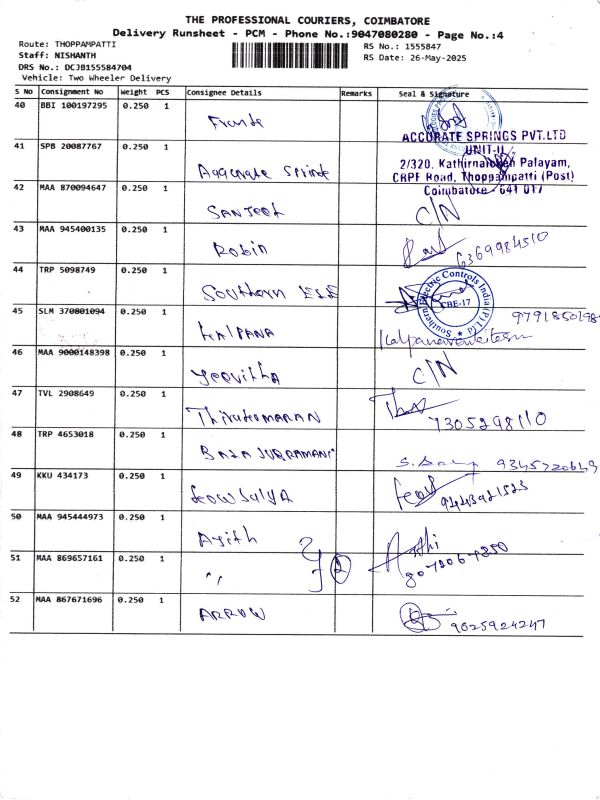 THE PROFESSIONAL COURIERS, COIMBATORE
Delivery Runsheet - PCM - Phone No.:9047080280 - Page No.:4
Route: THOPPAMPATTI
RS No.: 1555847
Staff: NISHANTH
RS Date: 26-May-2025
DRS No.: DCJB155584704
Vehicle: Two Wheeler Delivery
S No Consignment No Weight PCS Consignee Details Remarks Seal & Signature
40 BBI 100197295 0.250 1
ACCURATE SPRINGS PVT.LTD
UNIT-II
2/320, Kathirnaicken Palayam,
CRPF Road, Thoppampatti (Post)
Coimbatore - 641 017
41 SPB 20087767 0.250 1
42 MAA 870094647 0.250 1
SANJEEK C/N
43 MAA 945400135 0.250 1
Robin 6369984510
44 TRP 5098749 0.250 1
Southern
Southern Electric Controls India (P) Ltd
CBE-17
45 SLM 370801094 0.250 1
KALPANA
46 MAA 9000148398 0.250 1
C/N
47 TVL 2908649 0.250 1
Thirukumaran 7305298110
48 TRP 4653018 0.250 1
BALASUBRAMANI 9345720649
49 KKU 434173 0.250 1
Kowsalya 94443921523
50 MAA 945444973 0.250 1
Ajith
51 MAA 869657161 0.250 1
,, 2
52 MAA 867671696 0.250 1
ARROW 9025924247